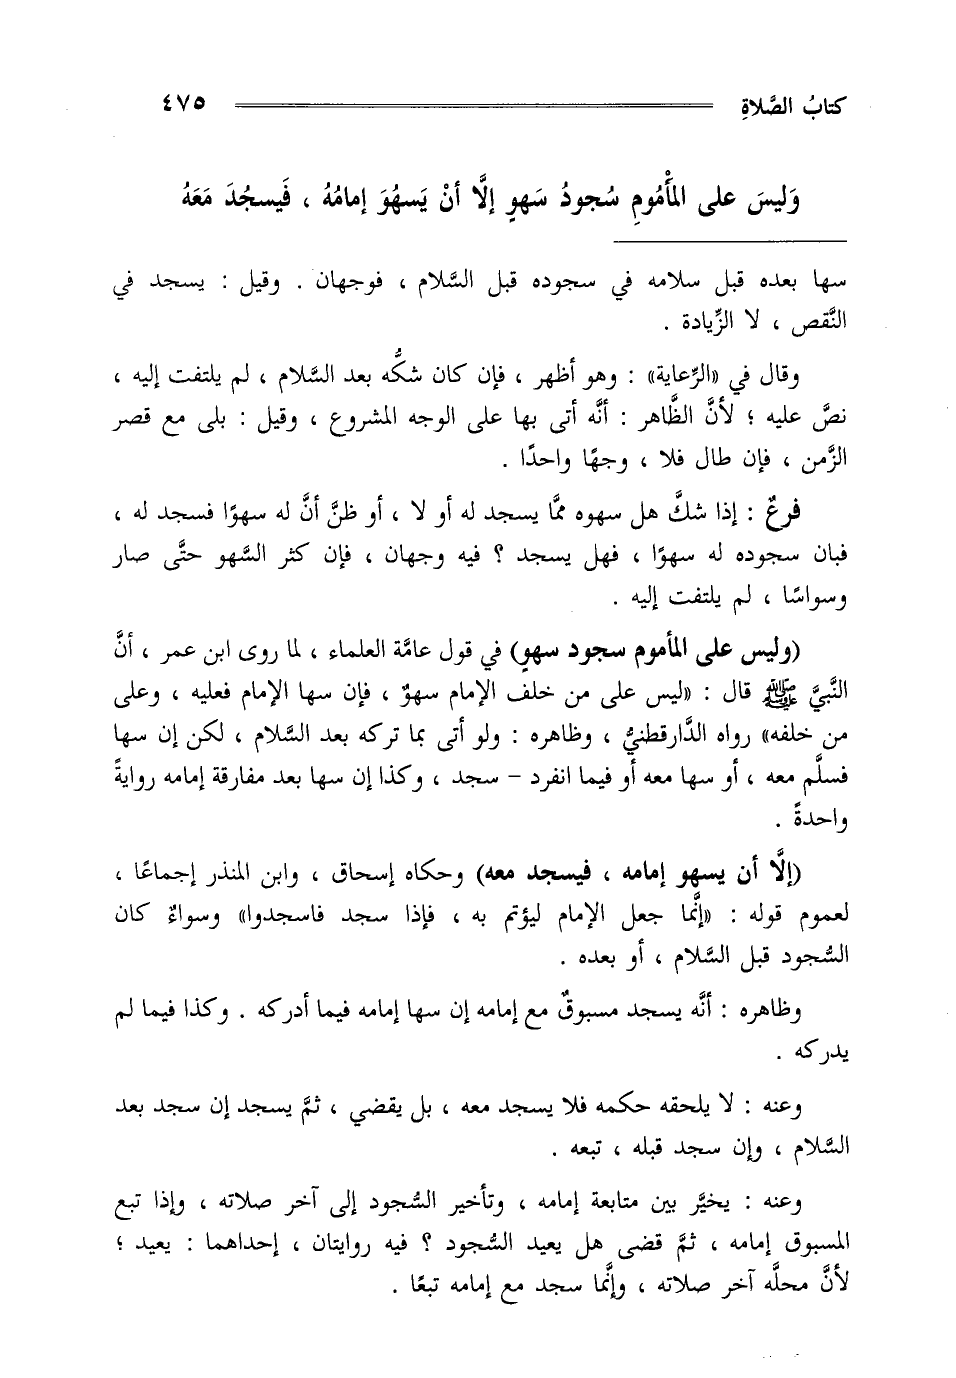 كتابُ الصَّلاةِ ٤٧٥
وَليسَ على المَأْمُومِ سُجودُ سَهوٍ إلَّا أنْ يَسهُوَ إمامُهُ ، فَيسجُدَ مَعَهُ
سها بعده قبل سلامه في سجوده قبل السَّلام ، فوجهان . وقيل : يسجد في
النَّقص ، لا الزِّيادة .
وقال في «الرِّعاية» : وهو أظهر ، فإن كان شكُّه بعد السَّلام ، لم يلتفت إليه ،
نصَّ عليه ؛ لأنَّ الظَّاهر : أنَّه أتى بها على الوجه المشروع ، وقيل : بلى مع قصر
الزَّمن ، فإن طال فلا ، وجهًا واحدًا .
فرعٌ : إذا شكَّ هل سهوه ممَّا يسجد له أو لا ، أو ظنَّ أنَّ له سهوًا فسجد له ،
فبان سجوده له سهوًا ، فهل يسجد ؟ فيه وجهان ، فإن كثر السَّهو حتَّى صار
وسواسًا ، لم يلتفت إليه .
(وليس على المأموم سجود سهوٍ) في قول عامَّة العلماء ، لما روى ابن عمر ، أنَّ
النَّبيَّ ﷺ قال : «ليس على من خلف الإمام سهوٌ ، فإن سها الإمام فعليه ، وعلى
من خلفه» رواه الدَّارقطنيُّ ، وظاهره : ولو أتى بما تركه بعد السَّلام ، لكن إن سها
فسلَّم معه ، أو سها معه أو فيما انفرد – سجد ، وكذا إن سها بعد مفارقة إمامه روايةً
واحدةً .
(إلَّا أن يسهو إمامه ، فيسجد معه) وحكاه إسحاق ، وابن المنذر إجماعًا ،
لعموم قوله : «إنَّما جعل الإمام ليؤتم به ، فإذا سجد فاسجدوا» وسواءٌ كان
السُّجود قبل السَّلام ، أو بعده .
وظاهره : أنَّه يسجد مسبوقٌ مع إمامه إن سها إمامه فيما أدركه . وكذا فيما لم
يدركه .
وعنه : لا يلحقه حكمه فلا يسجد معه ، بل يقضي ، ثمَّ يسجد إن سجد بعد
السَّلام ، وإن سجد قبله ، تبعه .
وعنه : يخيَّر بين متابعة إمامه ، وتأخير السُّجود إلى آخر صلاته ، وإذا تبع
المسبوق إمامه ، ثمَّ قضى هل يعيد السُّجود ؟ فيه روايتان ، إحداهما : يعيد ؛
لأنَّ محلَّه آخر صلاته ، وإنَّما سجد مع إمامه تبعًا .